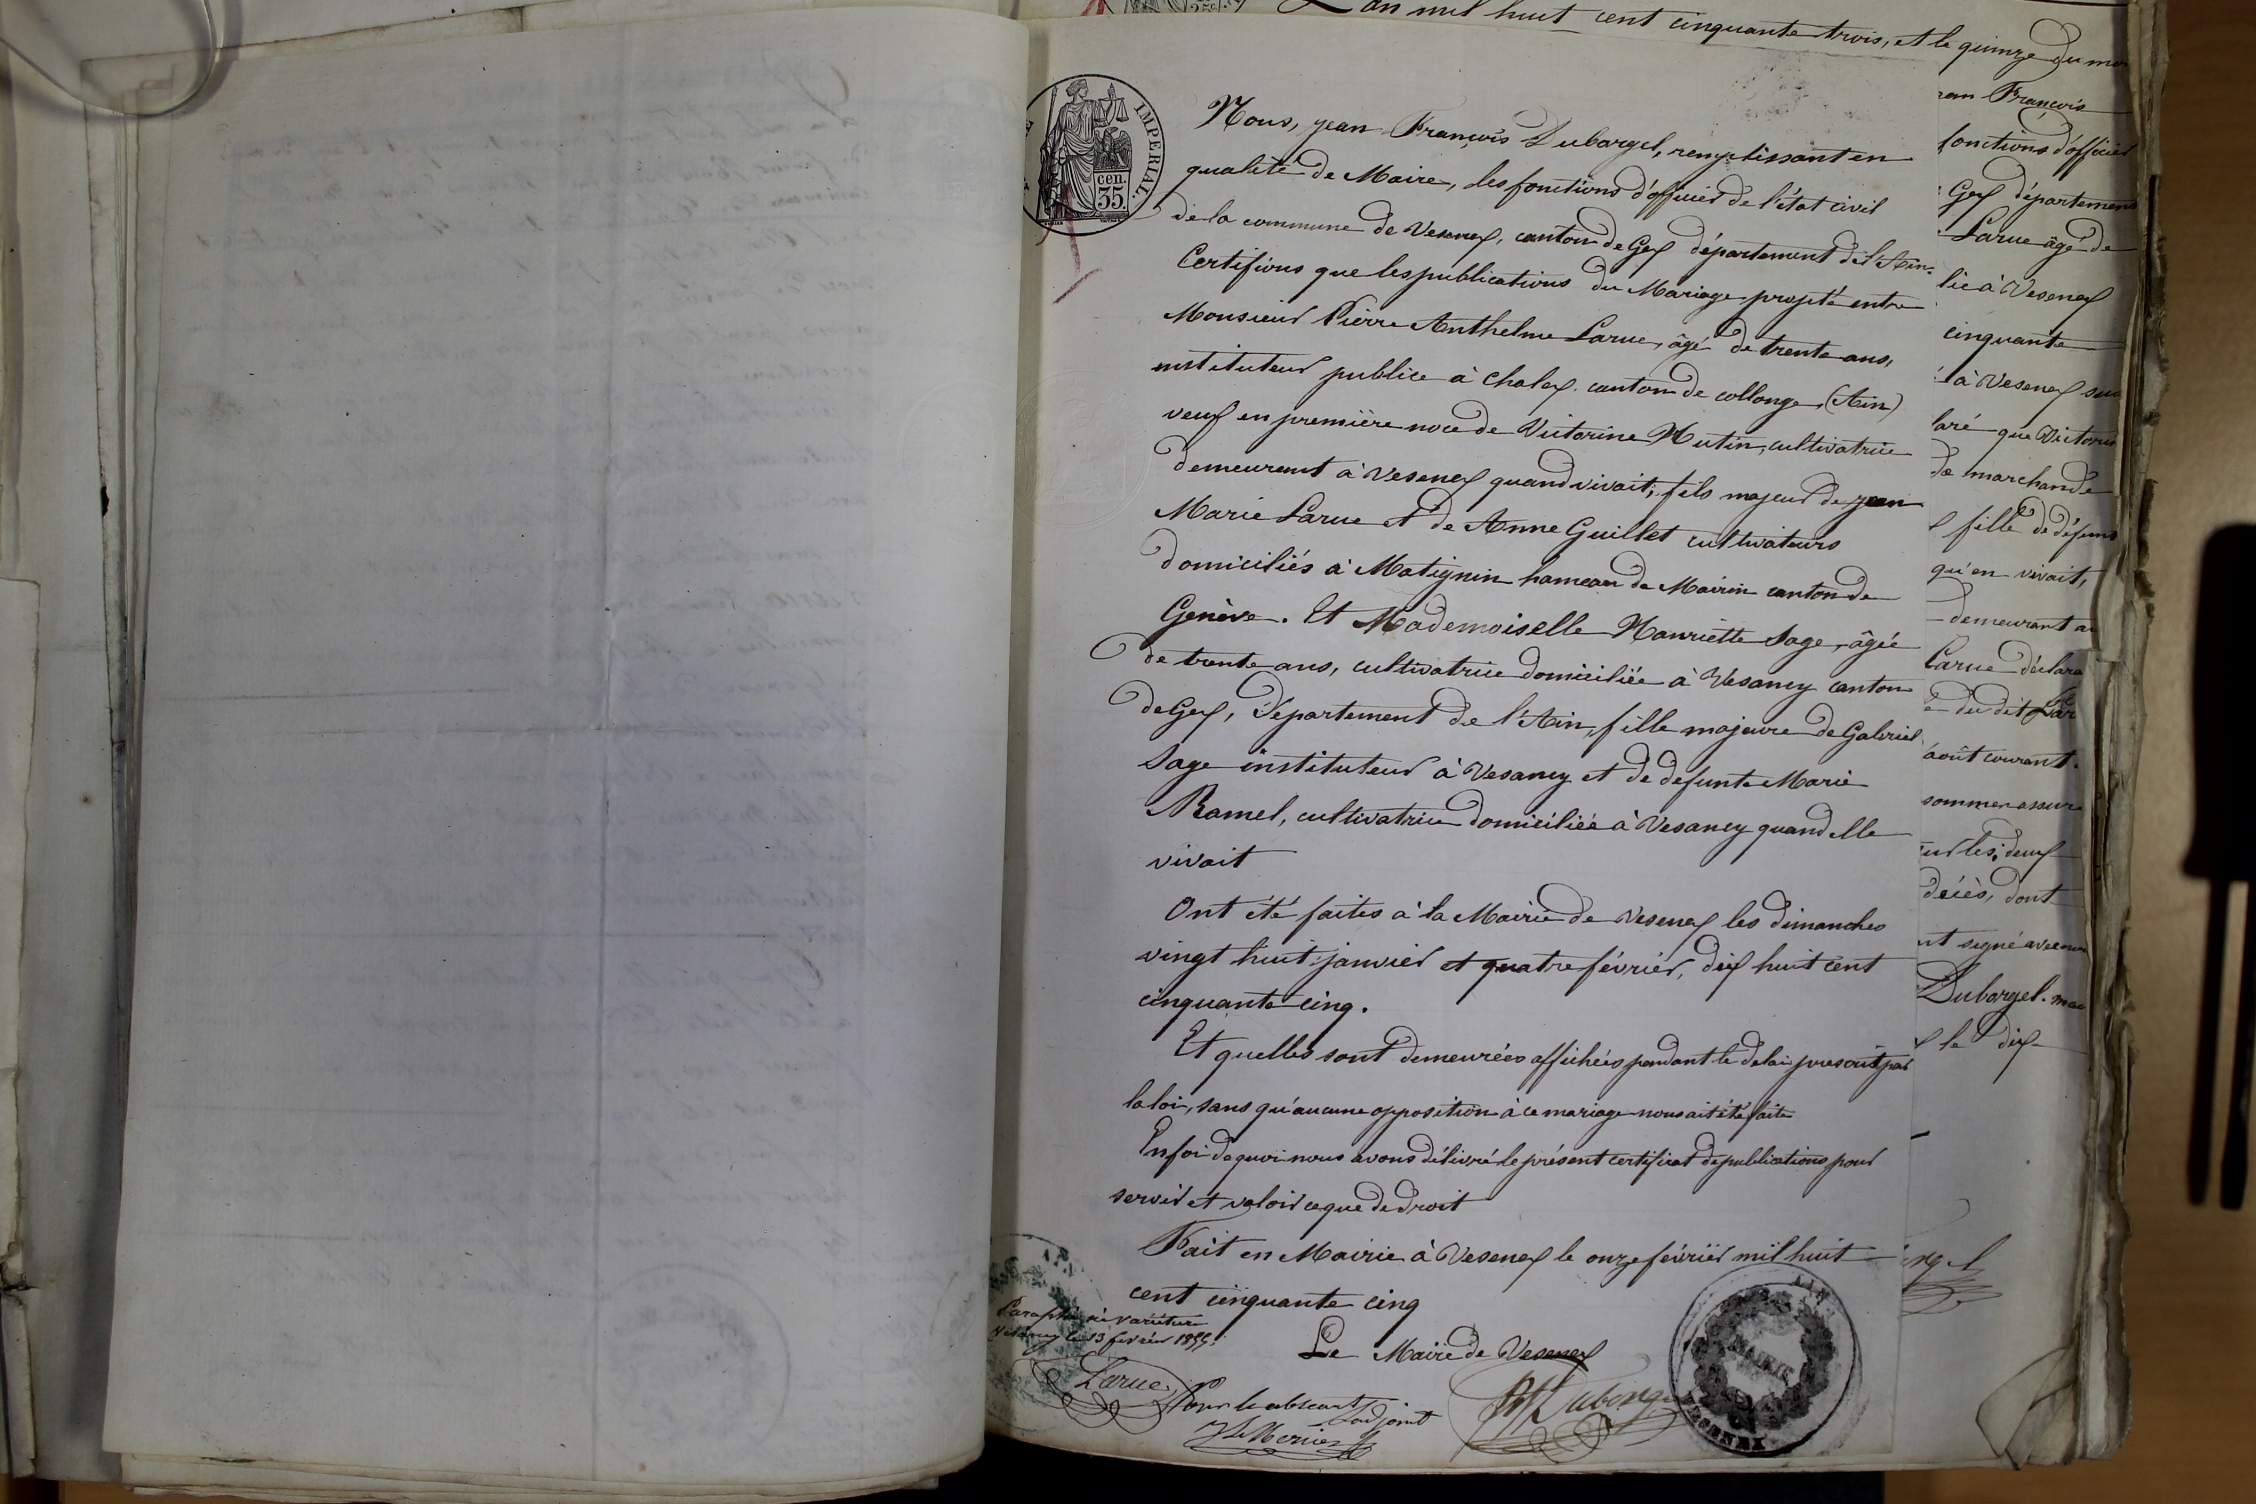 L'an mil huit cent cinquante trois, et le quinze du mois
IMPERIAL.
cen.
35.
Nous, jean François Duborgel, remplissant en
qualité de Maire, les fonctions d'officier de l'état civil
de la commune de Vesenex, canton de Gex département de l'Ain.
Certifions que les publications du Mariage projeté entre
Monsieur Pierre Anthelme Larue, âgé de trente ans,
instituteur publice à Chalex canton de collonge, (Ain)
veuf en première noce de Victorine Mutin, cultivatrice
demeurant à Vesenex quand vivait; fils majeur de jean
Marie Larue et de Anne Guillet cultivateurs
domiciliés à Matignin hameau de Mairin canton de
Genève. Et Mademoiselle Henriette Sage, âgée
de trente ans, cultivatrice domiciliée à Vesancy canton
de Gex, Département de l'Ain, fille majeure de Gabriel
Sage instituteur à Vesancy et de defunte Marie
Ramel, cultivatrice domiciliée à Vesancy quand elle
vivait
Ont été faites à la Mairie de Vesenex les dimanches
vingt huit janvier et quatre février, dix huit cent
cinquante cinq.
Et quelles sont demeurées affichées pendant le delai prescrit par
la loi, sans qu'aucune opposition à ce mariage nous ait été faite
En foi de quoi nous avons délivré le présent certificat de publications pour
servir et valoir ce que de droit
Fait en Mairie à Vesenex le onze février mil huit
cent cinquante cinq
Le Maire de Vesenex
Paraphé ne varietur
Vesancy le 13 fevrier 1855.
Larue
Pour le abscent
L'adjoint
Duborgel
AIN
MAIRIE
VESENEX
ean François
fonctions d'officier
Gex département
Larue âgé de
lié à Vesenex
cinquante
à Vesenex
laré que Victorine
de marchande
fille de défunt
qu'en vivait,
demeurant au
Larue déclara
du dit Lar
août courant.
sommes assuré
sur les deux
décès, dont
nt signé avec nous
Duborgel. mai
le dix